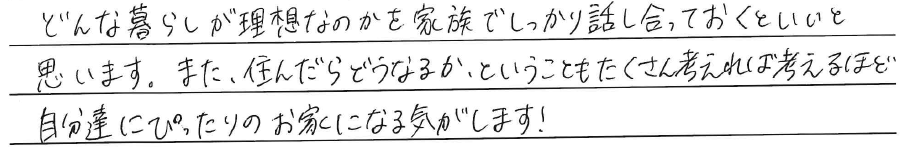 どんな暮らしが理想なのかを家族でしっかり話し合っておくといいと
思います。また、住んだらどうなるか、ということもたくさん考えれば考えるほど
自分達にぴったりのお家になる気がします!